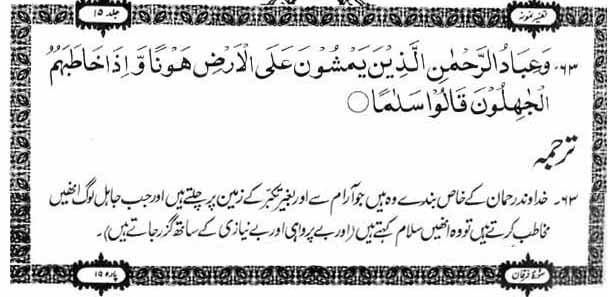 تفسیر نمونہ
جلد ۱۵
۶۳۔ وَعِبَادُ الرَّحْمٰنِ الَّذِيْنَ يَمْشُوْنَ عَلَى الْاَرْضِ هَوْنًا وَّاِذَا خَاطَبَهُمُ
الْجٰهِلُوْنَ قَالُوْا سَلٰمًا ○
ترجمہ
۶۳۔ خداوند رحمان کے خاص بندے وہ ہیں جو آرام سے اور بغیر تکبّر کے زمین پر چلتے ہیں اور جب جاہل لوگ انھیں
مخاطب کرتے ہیں تو وہ انھیں سلام کہتے ہیں (اور بے پرواہی اور بے نیازی کے ساتھ گزر جاتے ہیں)۔
سورۂ فرقان
پارہ ۱۹